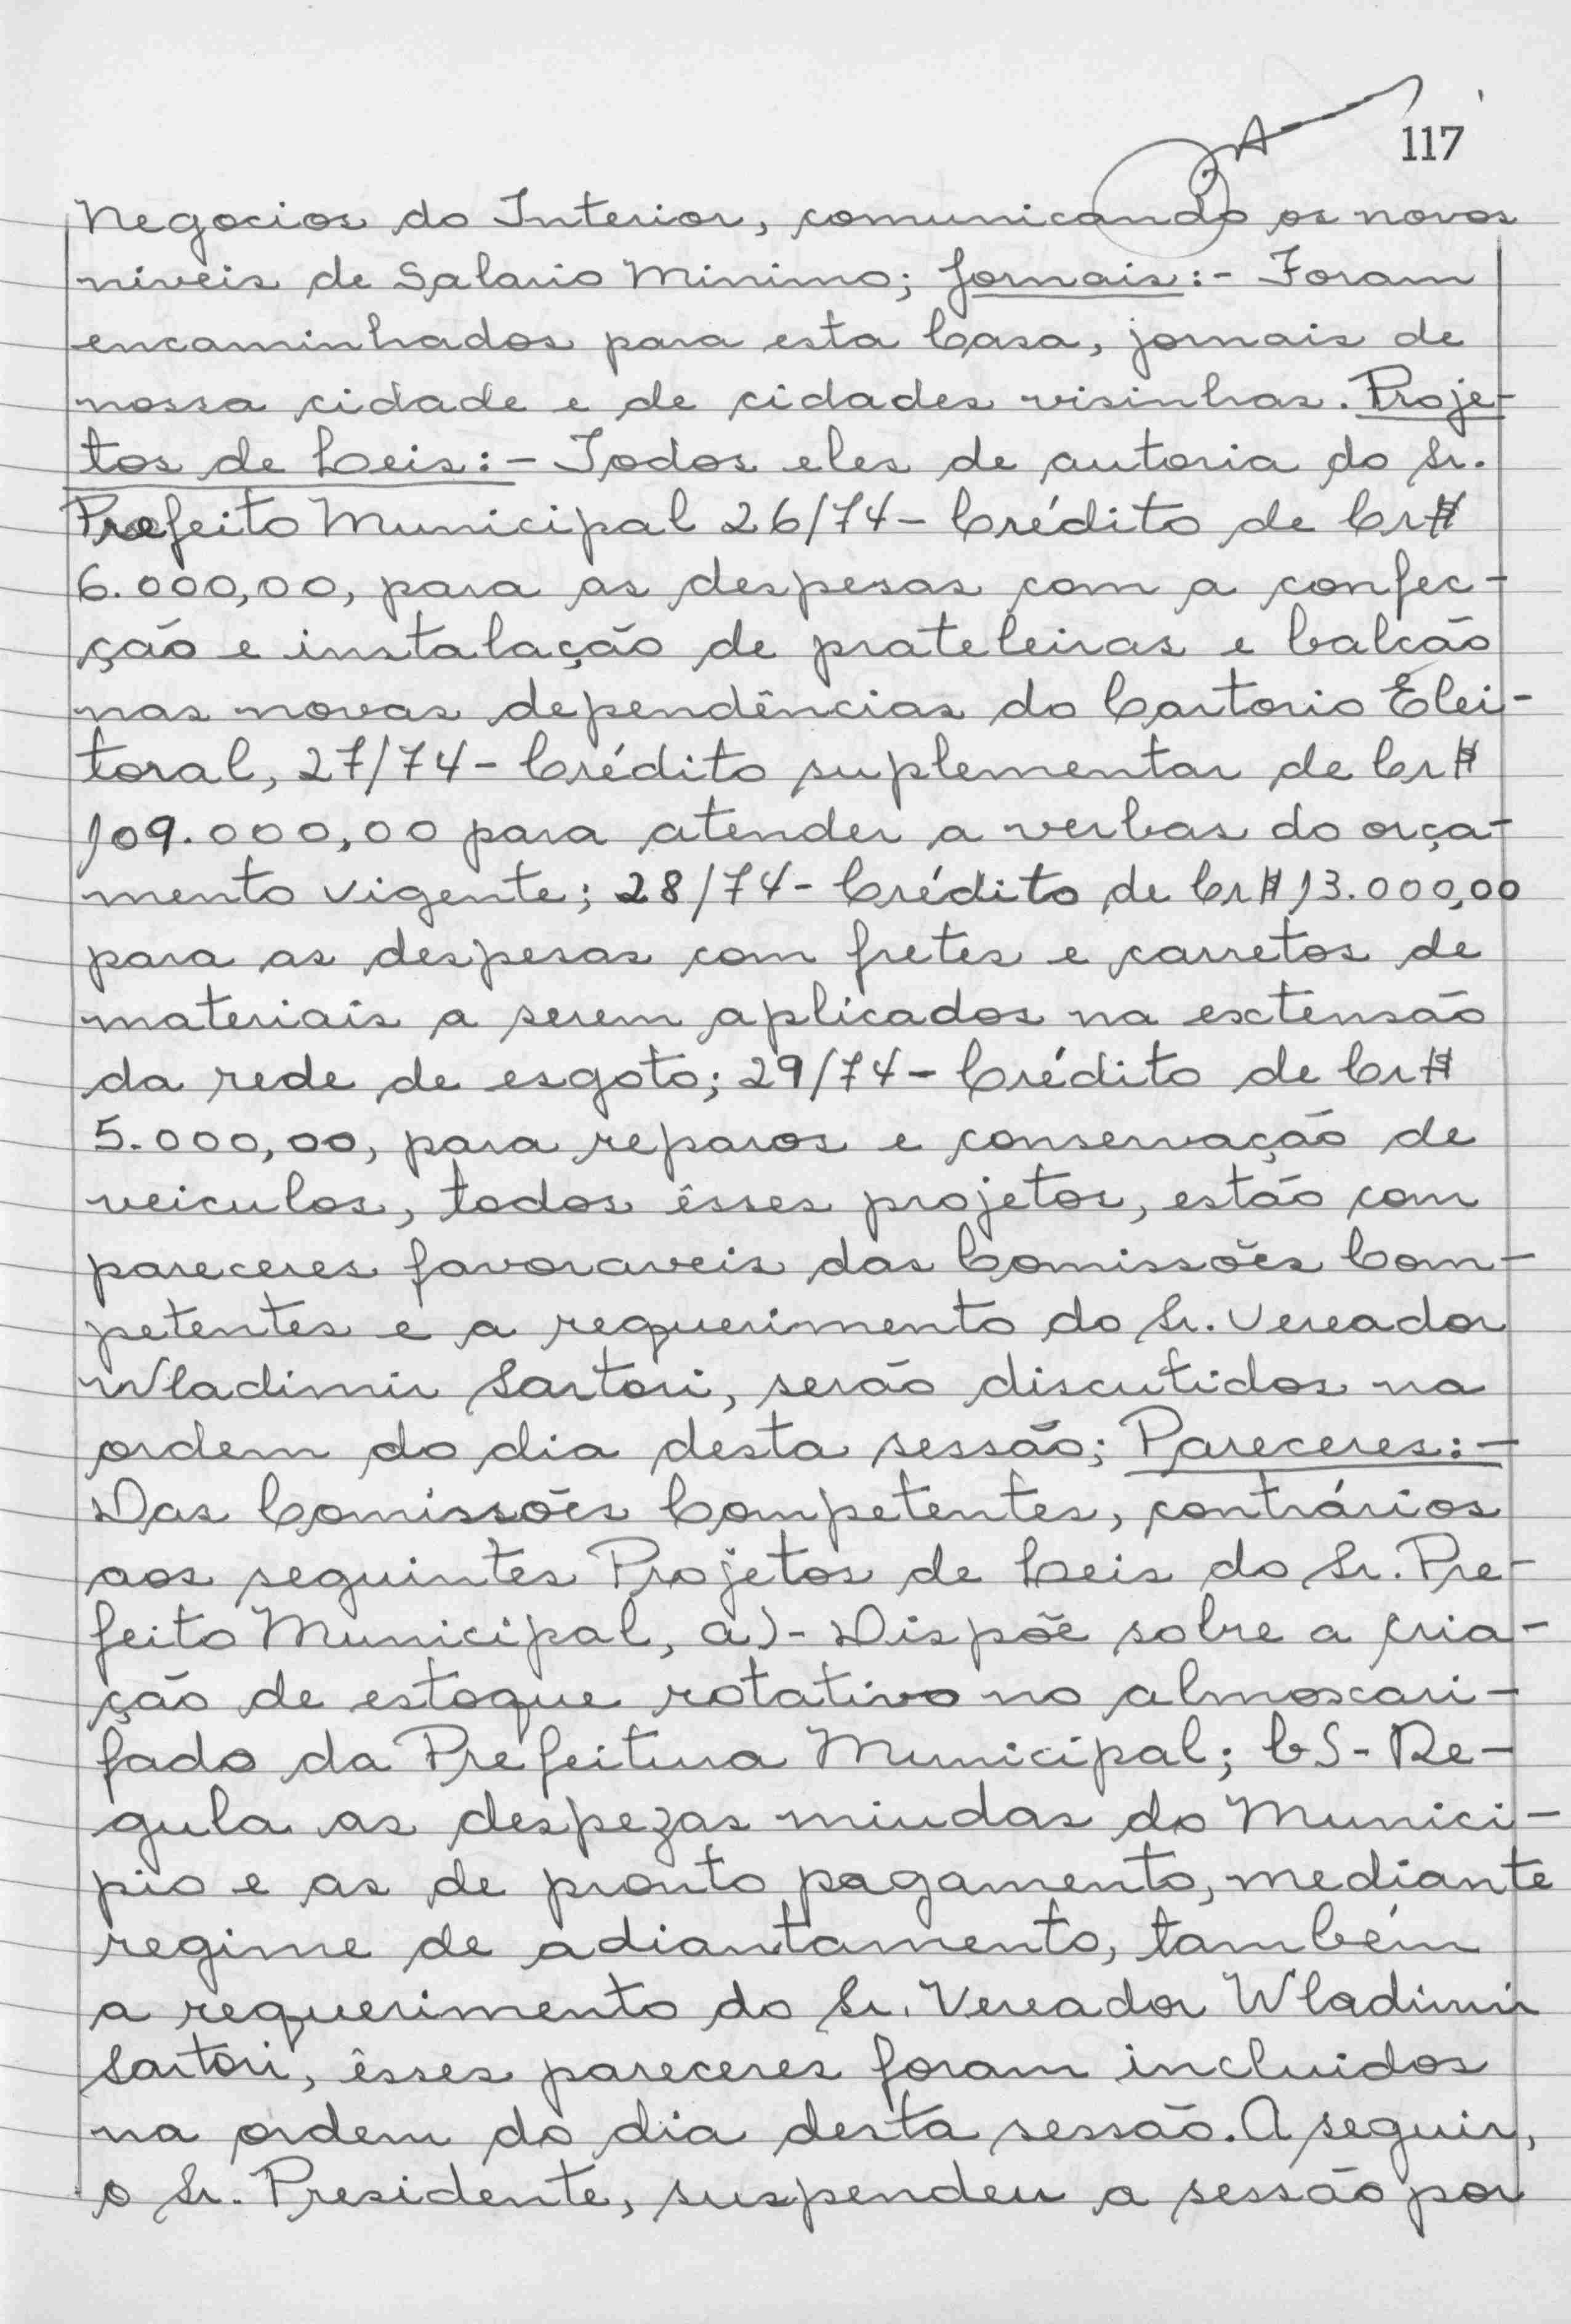 117
Negocios do Interior, comunicando os novos
níveis de Salario Minimo; Jornais:- Foram
encaminhados para esta Casa, jornais de
nossa cidade e de cidades visinhas. Proje-
tos de Leis:- Todos eles de autoria do Sr.
Prefeito Municipal 26/74- Crédito de Cr$
6.000,00, para as despesas com a confec-
ção e instalação de prateleiras e balcão
nas novas dependências do Cartorio Elei-
toral, 27/74- Crédito suplementar de Cr$
109.000,00 para atender a verbas do orça-
mento vigente; 28/74- Crédito de Cr$ 13.000,00
para as despesas com fretes e carretos de
materiais a serem aplicados na extensão
da rede de esgoto; 29/74- Crédito de Cr$
5.000,00, para reparos e conservação de
veiculos, todos êsses projetos, estão com
pareceres favoraveis das Comissões Com-
petentes e a requerimento do Sr. Vereador
Wladimir Sartori, serão discutidos na
ordem do dia desta sessão; Pareceres:-
Das Comissões Competentes, contrários
aos seguintes Projetos de Leis do Sr. Pre-
feito Municipal, a)- Dispõe sobre a cria-
ção de estoque rotativo no almoscari-
fado da Prefeitura Municipal; b)- Re-
gula as despezas miudas do Munici-
pio e as de pronto pagamento, mediante
regime de adiantamento, também
a requerimento do Sr. Vereador Wladimir
Sartori, êsses pareceres foram incluidos
na ordem do dia desta sessão. A seguir,
o Sr. Presidente, suspendeu a sessão por